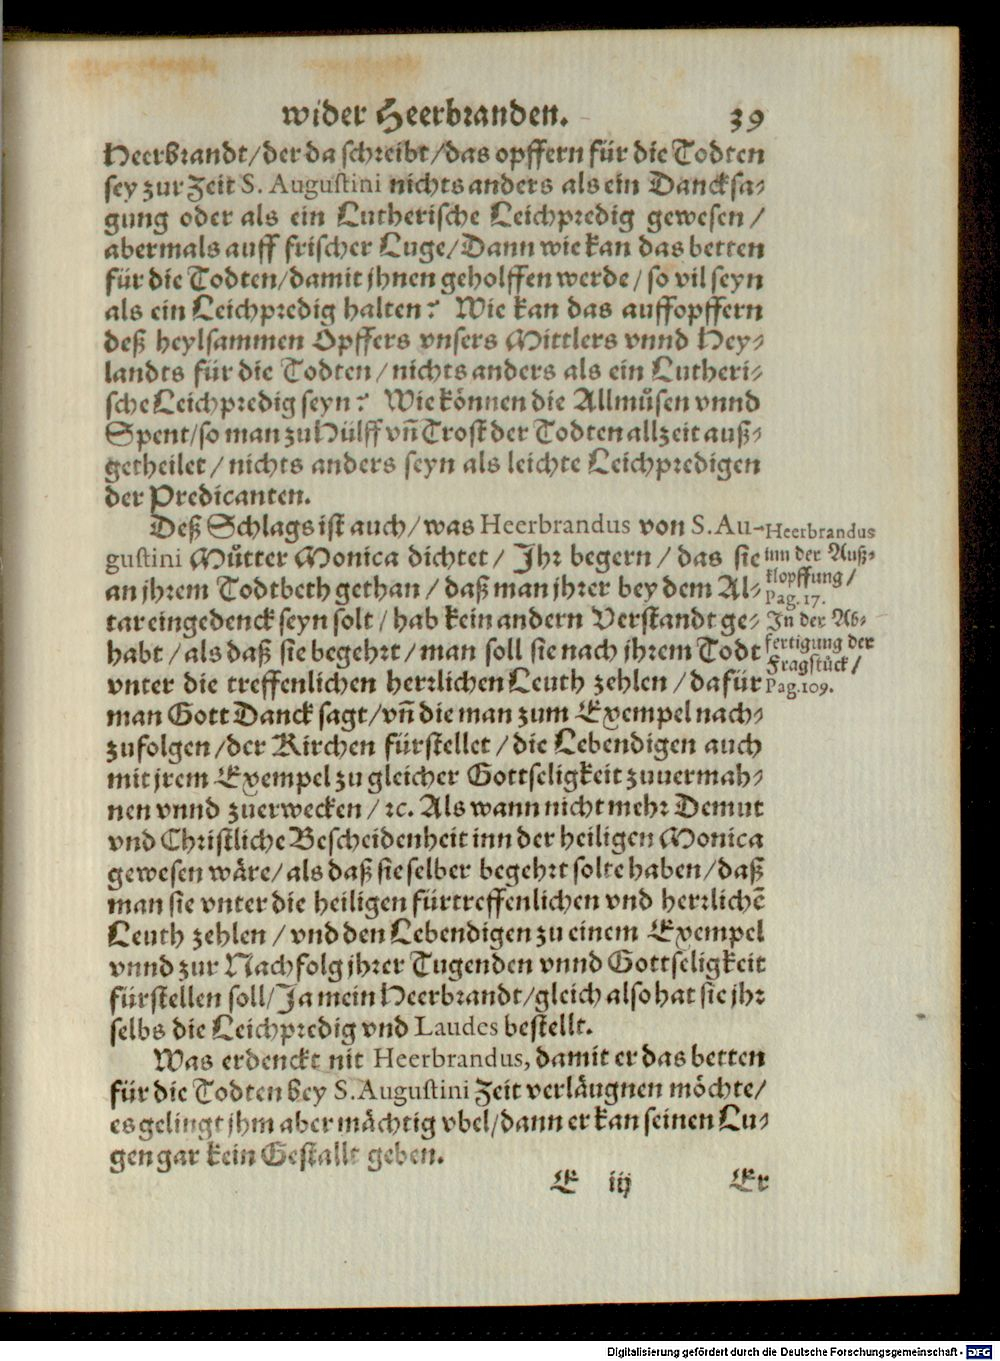 wider Heerbranden. 39
Heerbrandt/der da schreibt/das opffern für die Todten
sey zur Zeit S. Augustini nichts anders als ein Dancksa⸗
gung oder als ein Lutherische Leichpredig gewesen/
abermals auff frischer Luge/Dann wie kan das betten
für die Todten/damit jhnen geholffen werde/so vil seyn
als ein Leichpredig halten? Wie kan das auffopffern
deß heylsammen Opffers vnsers Mittlers vnnd Hey⸗
landts für die Todten/nichts anders als ein Lutheri⸗
sche Leichpredig seyn? Wie können die Allmůsen vnnd
Spent/so man zu Hülff vñ Trost der Todten allzeit auß⸗
getheilet/nichts anders seyn als leichte Leichpredigen
der Predicanten.
Deß Schlags ist auch/was Heerbrandus von S. Au-
gustini Můtter Monica dichtet/Jhr begern/das sie
an jhrem Todtbeth gethan/daß man jhrer bey dem Al⸗
tar eingedenck seyn solt/hab kein andern Verstandt ge⸗
habt/als daß sie begehrt/man soll sie nach jhrem Todt
vnter die treffenlichen herrlichen Leuth zehlen/dafür
man Gott Danck sagt/vñ die man zum Exempel nach⸗
zufolgen/der Kirchen fürstellet/die Lebendigen auch
mit jrem Exempel zu gleicher Gottseligkeit zuuermah⸗
nen vnnd zuerwecken/ꝛc. Als wann nicht mehr Demut
vnd Christliche Bescheidenheit inn der heiligen Monica
gewesen wäre/als daß sie selber begehrt solte haben/daß
man sie vnter die heiligen fürtreffenlichen vnd herrlichē
Leuth zehlen/vnd den Lebendigen zu einem Exempel
vnnd zur Nachfolg jhrer Tugenden vnnd Gottseligkeit
fürstellen soll/Ja mein Heerbrandt/gleich also hat sie jhr
selbs die Leichpredig vnd Laudes bestellt.
Heerbrandus
inn der Auß⸗
klopffung/
Pag. 17.
In der Ab⸗
fertigung der
Fragstück/
Pag. 109.
Was erdenckt nit Heerbrandus, damit er das betten
für die Todten bey S. Augustini Zeit verläugnen möchte/
es gelingt jhm aber mächtig vbel/dann er kan seinen Lu⸗
gen gar kein Gestallt geben.
E iij Er
Digitalisierung gefördert durch die Deutsche Forschungsgemeinschaft - DFG